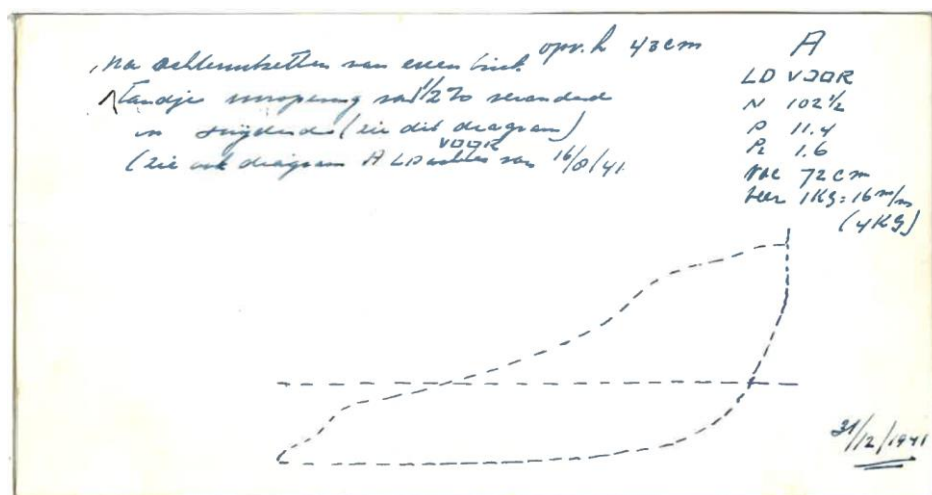 Na achteruitzetten van excentriek opv. h 43cm
tandje van 1/2 % veranderd
in (zie dit diagram)
(zie ook diagram A LD achter VOOR van 16/8/41
A
LD VOOR
N 102 1/2
P 11.4
P2 1.6
vac 72 cm
veer 1KG = 16 m/m
(4KG)
31/12/1941